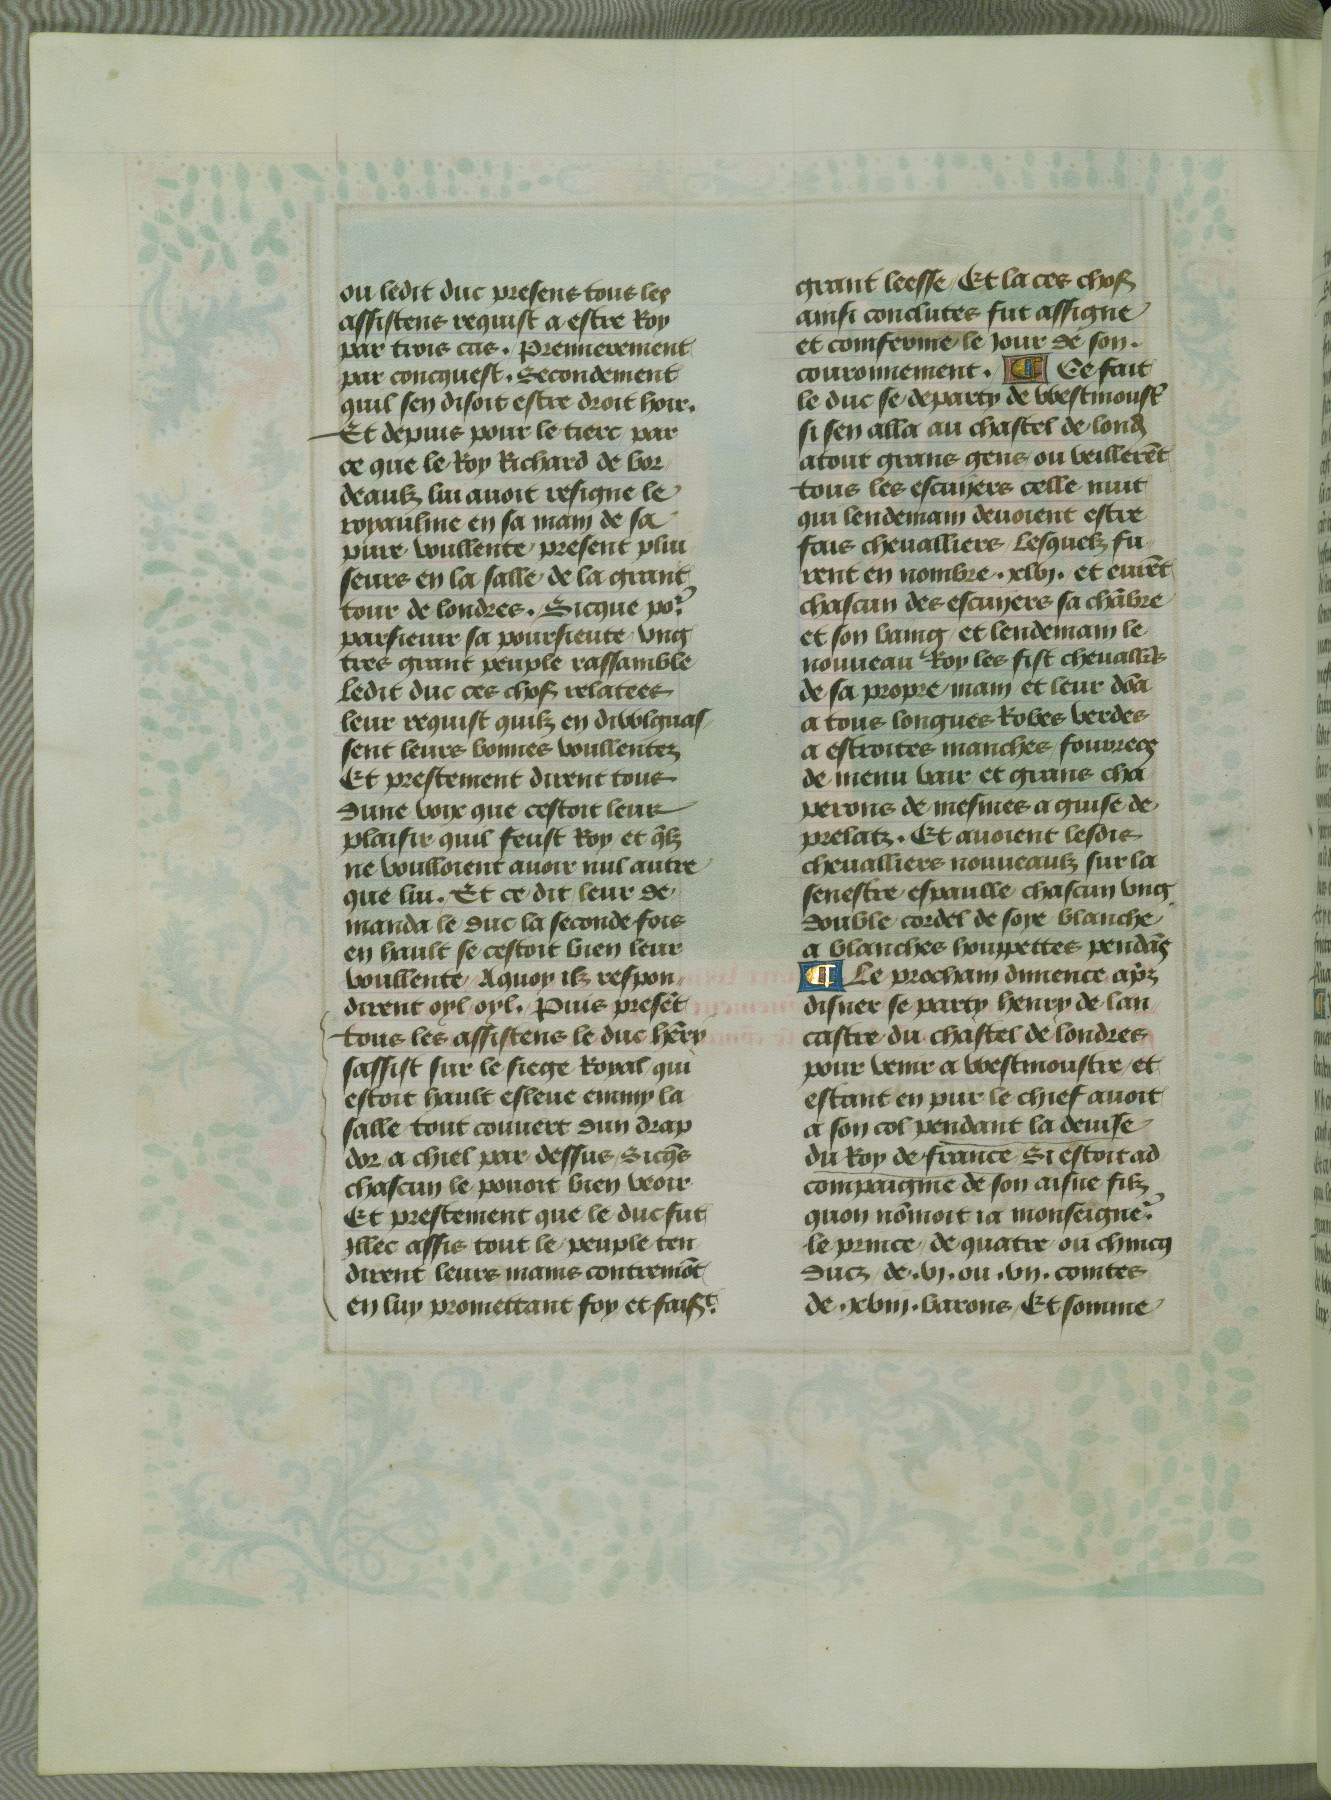 ou ledit duc present tous les
assistens requist a estre Roy
par trois cas. Premierement
par concquest. Secondement
quil sen disoit estre droit hoir.
Et depuis pour le tierc par
ce que le Roy Richard de bor
deaulz lui auoit resigne le
royaulme en sa main de sa
pure voullente present plui
seurs en la salle de la grant
tour de londres. Sicque poʳ
parsieuir sa poursieute vng
tres grant peuple rassamble
Ledit duc ces choses relatees
leur requist quilz en divvlguas
sent leurs bonnes voullentez
Et prestement dirent tous
dune voix que cestoit leur
plaisir quil feust Roy et q̃lz
ne voulloient auoir nul autre
que lui. Et ce dit leur de
manda le duc la seconde fois
en hault se cestoit bien leur
voullente Aquoy ilz respon
dirent oyl oyl. Puis presẽt
tous les assistens le duc hẽry
sassist sur le siege Royal qui
estoit hault esleue emmy la
salle tout couuert dun drap
dor a chiel par dessus Sicq̃s
chascun le pouoit bien veoir
Et prestement que le duc fut
Illec assis tout le peuple ten
dirent leurs mains contremõt
en luy promettant foy et faisᵗ
grant leesse Et la ces choses
ainsi conclutes fut assigne
et comferme le Jour de son
couronnement. ¶ Ce fait
le duc se departy de vvestmoustʳ
si sen alla au chastel de lond̃
atout grans gens ou veillerẽt
tous les escuyers celle nuit
qui lendemain deuoient estre
fais cheualliers Lesquelz fu
rent en nombre .xlvj. et eurẽt
chascun des escuyers sa chãbre
et son baing et lendemain le
nouueau Roy les fist cheualliẽs
de sa propre main et leur dõa
a tous longues Robes verdes
a estroites manches fourrees
de menu vair et grans cha
perons de mesmes a guise de
prelatz. Et auoient lesdis
cheualliers nouueaulz sur la
senestre espaulle chascun vng
double cordel de soye blanche
a blanches houppettes pendãs
¶ Le prochain dimence ap̃z
disner se party henry de lan
castre du chastel de londres
pour venir a vvestmoustre et
estant en pur le chief auoit
a son col pendant la deuise
du Roy de france Si estoit ad
compaignie de son aisne filz
quon nõmoit ia monseigneʳ
le prince de quatre ou chincq
ducz de .vj. ou .vij. comtes
de .xviij. barons Et somme